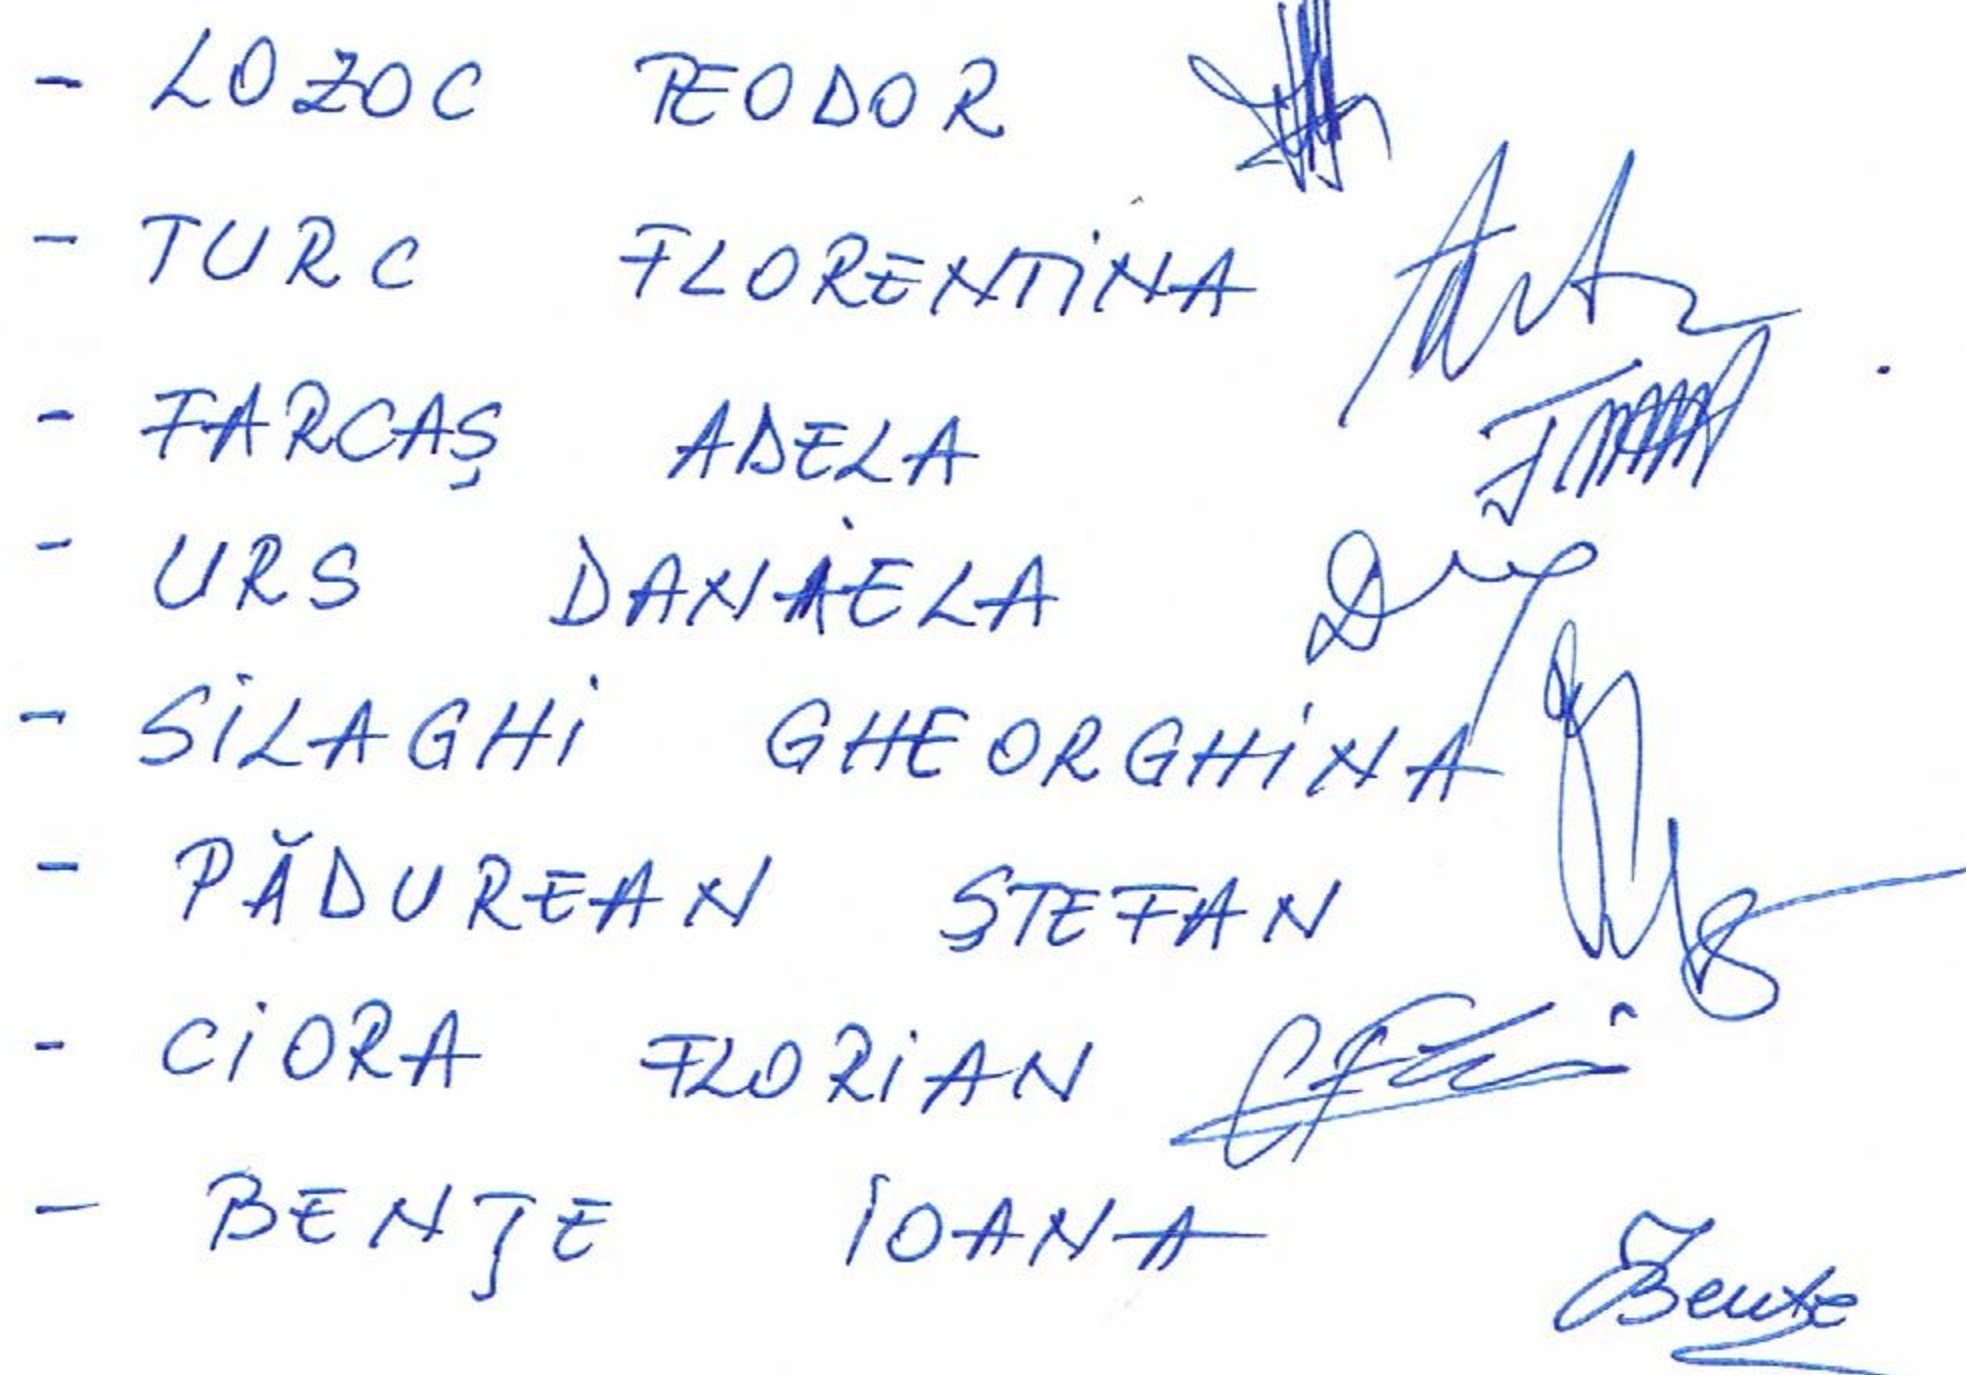 - LOZOC TEODOR
- TURC FLORENTINA
- FARCAȘ ADELA
- URS DANIELA
- SILAGHI GHEORGHINA
- PĂDUREAN ȘTEFAN
- CIORA FLORIAN
- BENȚE IOANA
Bențe